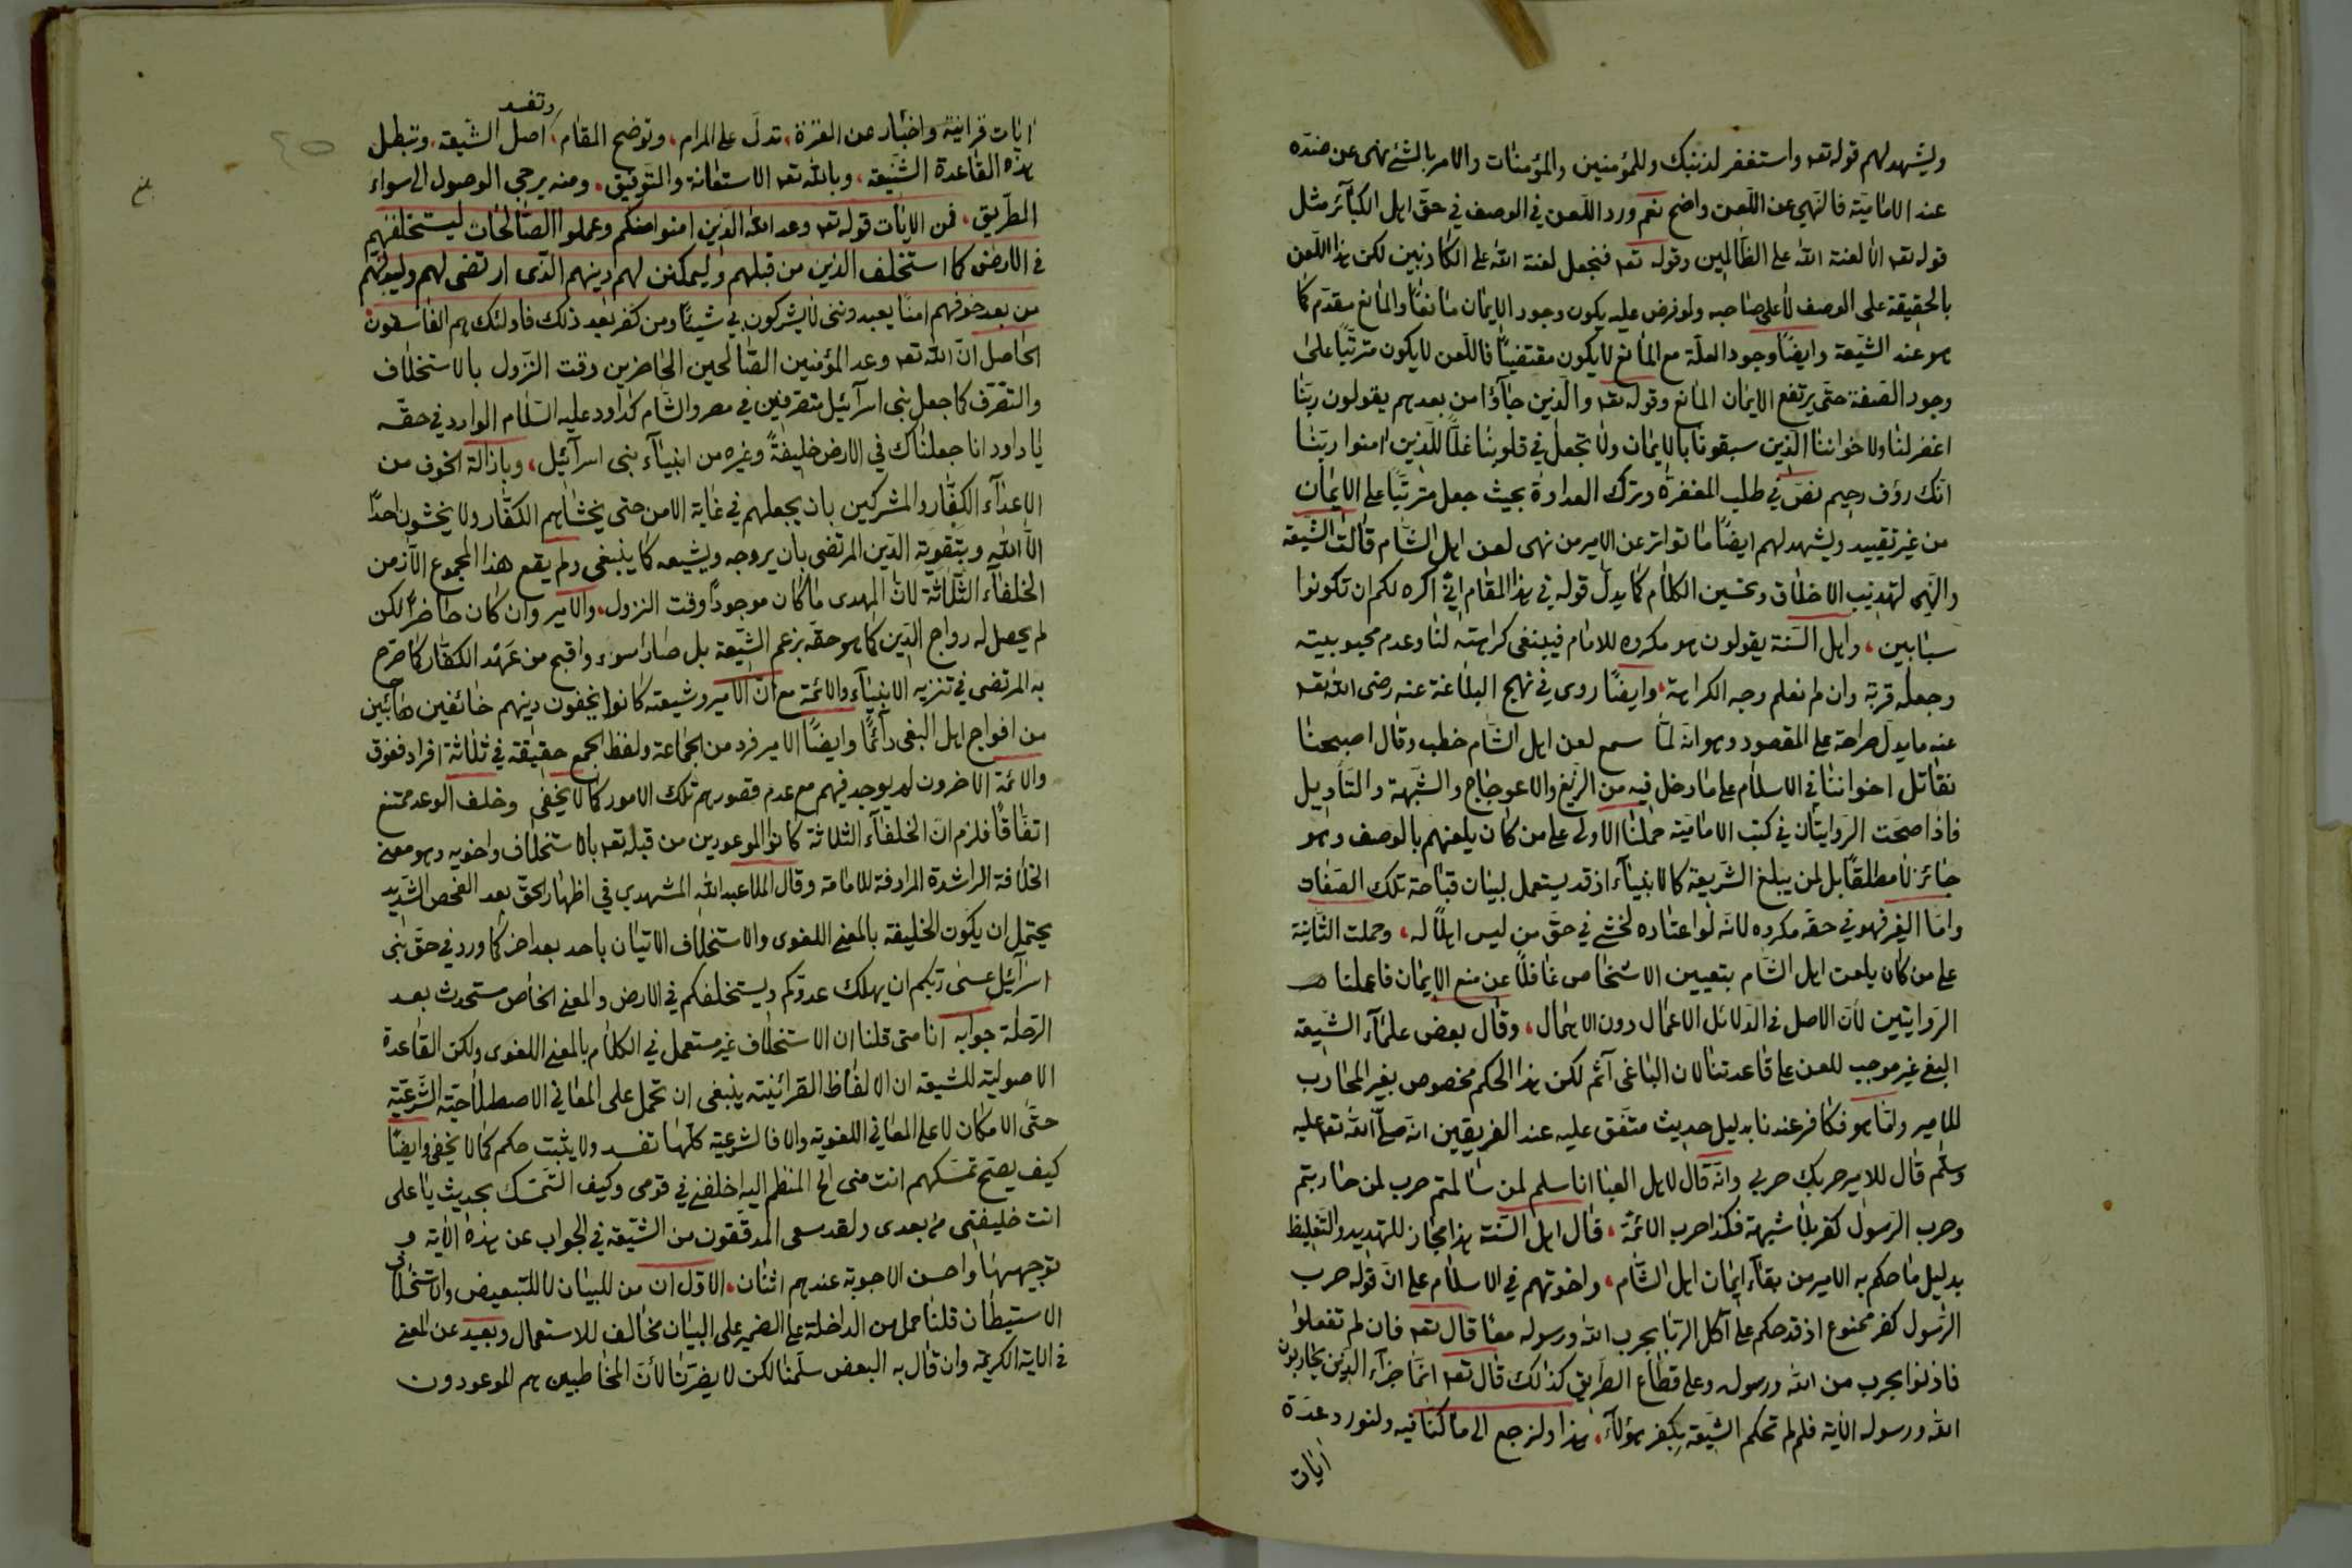 ويشهد لهم قوله تعه واستغفر لذنبك وللمؤمنين والمؤمنات والامر بالشئ نهى عن ضده
عند الامامية فالنهي عن اللعن واضح نعم ورد اللعن في الوصف في حق اهل الكبآئر مثل
قوله تعه الا لعنة الله على الظالمين وقوله تعه فنجعل لعنة الله على الكاذبين لكن هذا اللعن
بالحقيقة على الوصف لا على صاحبه ولو فرض عليه يكون وجود الايمان مانعًا والمانع مقدم كما
هو عند الشيعة وايضًا وجود العلة مع المانع لا يكون مقتضيًا فاللعن لا يكون مترتبًا على
وجود الصفة حتى يرتفع الايمان المانع وقوله تعه والذين جآؤا من بعدهم يقولون ربنا
اغفر لنا ولاخواننا الذين سبقونا بالايمان ولا تجعل في قلوبنا غلًا للذين امنوا ربنا
انك رؤف رحيم نص في طلب المغفرة وترك العداوة بحيث جعل مترتبًا على الايمان
من غير تقييد ويشهد لهم ايضًا ما تواتر عن الامير من نهى لعن اهل الشام قالت الشيعة
والنهي لتهذيب الاخلاق وتحسين الكلام كما يدل قوله في هذا المقام اني اكره لكم ان تكونوا
سبابين، واهل السنة يقولون هو مكروه للامام فينبغى كراهته لنا وعدم محبوبيته
وجعله قربة وان لم نعلم وجه الكراهة، وايضًا روى في نهج البلاغة عنه رضى الله تعه
عنه ما يدل صراحة على المقصود وهو انه لما سمع لعن اهل الشام خطب وقال اصبحنا
نقاتل اخواننا في الاسلام على ما دخل فيه من الزيغ والاعوجاج والشبهة والتأويل
فاذا صحت الروايتان في كتب الامامية حملنا الاولى على من كان يلعنهم بالوصف وهو
جائز لا مطلقًا بل لمن يبلغ الشريعة كالانبيآء اذ قد يستعمل لبيان قباحة تلك الصفات
واما الغير فهو في حقه مكروه لانه لو اعتاده لخشى في حق من ليس اهلًا له، وحملت الثانية
على من كان يلعن اهل الشام بتعيين الاشخاص غافلًا عن منع الايمان فاعملنا
الروايتين لان الاصل في الدلائل الاعمال دون الاهمال، وقال بعض علمآء الشيعة
البغي غير موجب للعن على قاعدتنا لان الباغى آثم لكن هذا الحكم مخصوص بغير المحارب
للامير واما هو فكافر عندنا بدليل حديث متفق عليه عند الفريقين انه صلى الله تعه عليه
وسلم قال للامير حربك حربي وانه قال لاهل العبا انا سلم لمن سالمتم حرب لمن حاربتم
وحرب الرسول كفر بلا شبهة فكذا حرب الائمة، قال اهل السنة هذا مجاز للتهديد والتغليظ
بدليل ما حكم به الامير من بقآء ايمان اهل الشام، واخوتهم في الاسلام على ان قوله حرب
الرسول كفر ممنوع اذ قد حكم على آكل الربا بحرب الله ورسوله معًا قال تعه فان لم تفعلوا
فاذنوا بحرب من الله ورسوله وعلى قطاع الطريق كذلك قال تعه انما جزآء الذين يحاربون
الله ورسوله الاية فلم لم تحكم الشيعة بكفر هؤلآء، هذا ولنرجع الى ما كنا فيه ولنورد عدة
ايات
وتفسد
ايات قرانية واخبار عن العترة، تدل على المرام، وتوضح المقام، اصل الشيعة، وتبطل
هذه القاعدة الشنيعة، وبالله تعه الاستعانة والتوفيق، ومنه يرجى الوصول الى سواء
الطريق، فمن الايات قوله تعه وعد الله الذين امنوا منكم وعملوا الصالحات ليستخلفنهم
في الارض كما استخلف الذين من قبلهم وليمكنن لهم دينهم الذى ارتضى لهم وليبدلنهم
من بعد خوفهم امنًا يعبدونني لا يشركون بي شيئًا ومن كفر بعد ذلك فاولئك هم الفاسقون
الحاصل ان الله تعه وعد المؤمنين الصالحين الحاضرين وقت النزول بالاستخلاف
والتصرف كما جعل بنى اسرآئيل متصرفين في مصر والشام كداود عليه السلام الوارد في حقه
يا داود انا جعلناك في الارض خليفةً وغيره من انبيآء بنى اسرآئيل، وبازالة الخوف من
الاعدآء الكفار والمشركين بان يجعلهم في غاية الامن حتى يخشاهم الكفار ولا يخشون احدًا
الا الله وبتقوية الدين المرتضى بان يروجه ويشيعه كما ينبغى ولم يقع هذا المجموع الا زمن
الخلفآء الثلاثة لان المهدى ما كان موجودًا وقت النزول، والامير وان كان حاضرًا لكن
لم يحصل له رواج الدين كما هو حقه بزعم الشيعة بل صار اسوء واقبح من عهد الكفار كما صرح
به المرتضى في تنزيه الانبيآء والائمة مع ان الامير وشيعته كانوا يخفون دينهم خائفين هائبين
من افواج اهل البغى دائمًا وايضًا الامير فرد من الجماعة ولفظ الجمع حقيقة في ثلاثة افراد ففوق
والائمة الاخرون لم يوجد فيهم مع عدم قصورهم تلك الامور كما لا يخفى وخلف الوعد ممتنع
اتفاقًا فلزم ان الخلفآء الثلاثة كانوا الموعودين من قبله تعه بالاستخلاف واخويه وهو معنى
الخلافة الراشدة المرادفة للامامة وقال الملا عبد الله المشهدي في اظهار الحق بعد الفحص الشديد
يحتمل ان يكون الخليفة بالمعنى اللغوى والاستخلاف الاتيان باحد بعد اخر كما ورد في حق بنى
اسرآئيل عسى ربكم ان يهلك عدوكم ويستخلفكم في الارض والمعنى الخاص مستحدث بعد
الرحلة جوابه انا متى قلنا ان الاستخلاف غير مستعمل في الكلام بالمعنى اللغوى ولكن القاعدة
الاصولية للشيعة ان الالفاظ القرانية ينبغى ان تحمل على المعاني الاصطلاحية الشرعية
حتى الامكان لا على المعاني اللغوية والا فالشرعية كلها تفسد ولا يثبت حكم كما لا يخفى وايضًا
كيف يصح تمسكهم انت منى الخ المنظم اليه اخلفني في قومى وكيف التمسك بحديث يا على
انت خليفتى من بعدى ولقد سعى المدققون من الشيعة في الجواب عن هذه الاية و
توجيهها واحسن الاجوبة عندهم اثنان، الاول ان من للبيان لا للتبعيض والاستخلاف
الاستيطان قلنا حمل من الداخلة على الضمير على البيان مخالف للاستعمال وبعيد عن المعنى
في الاية الكريمة وان قال به البعض سلمنا لكن لا يضرنا لأن المخاطبين هم الموعودون